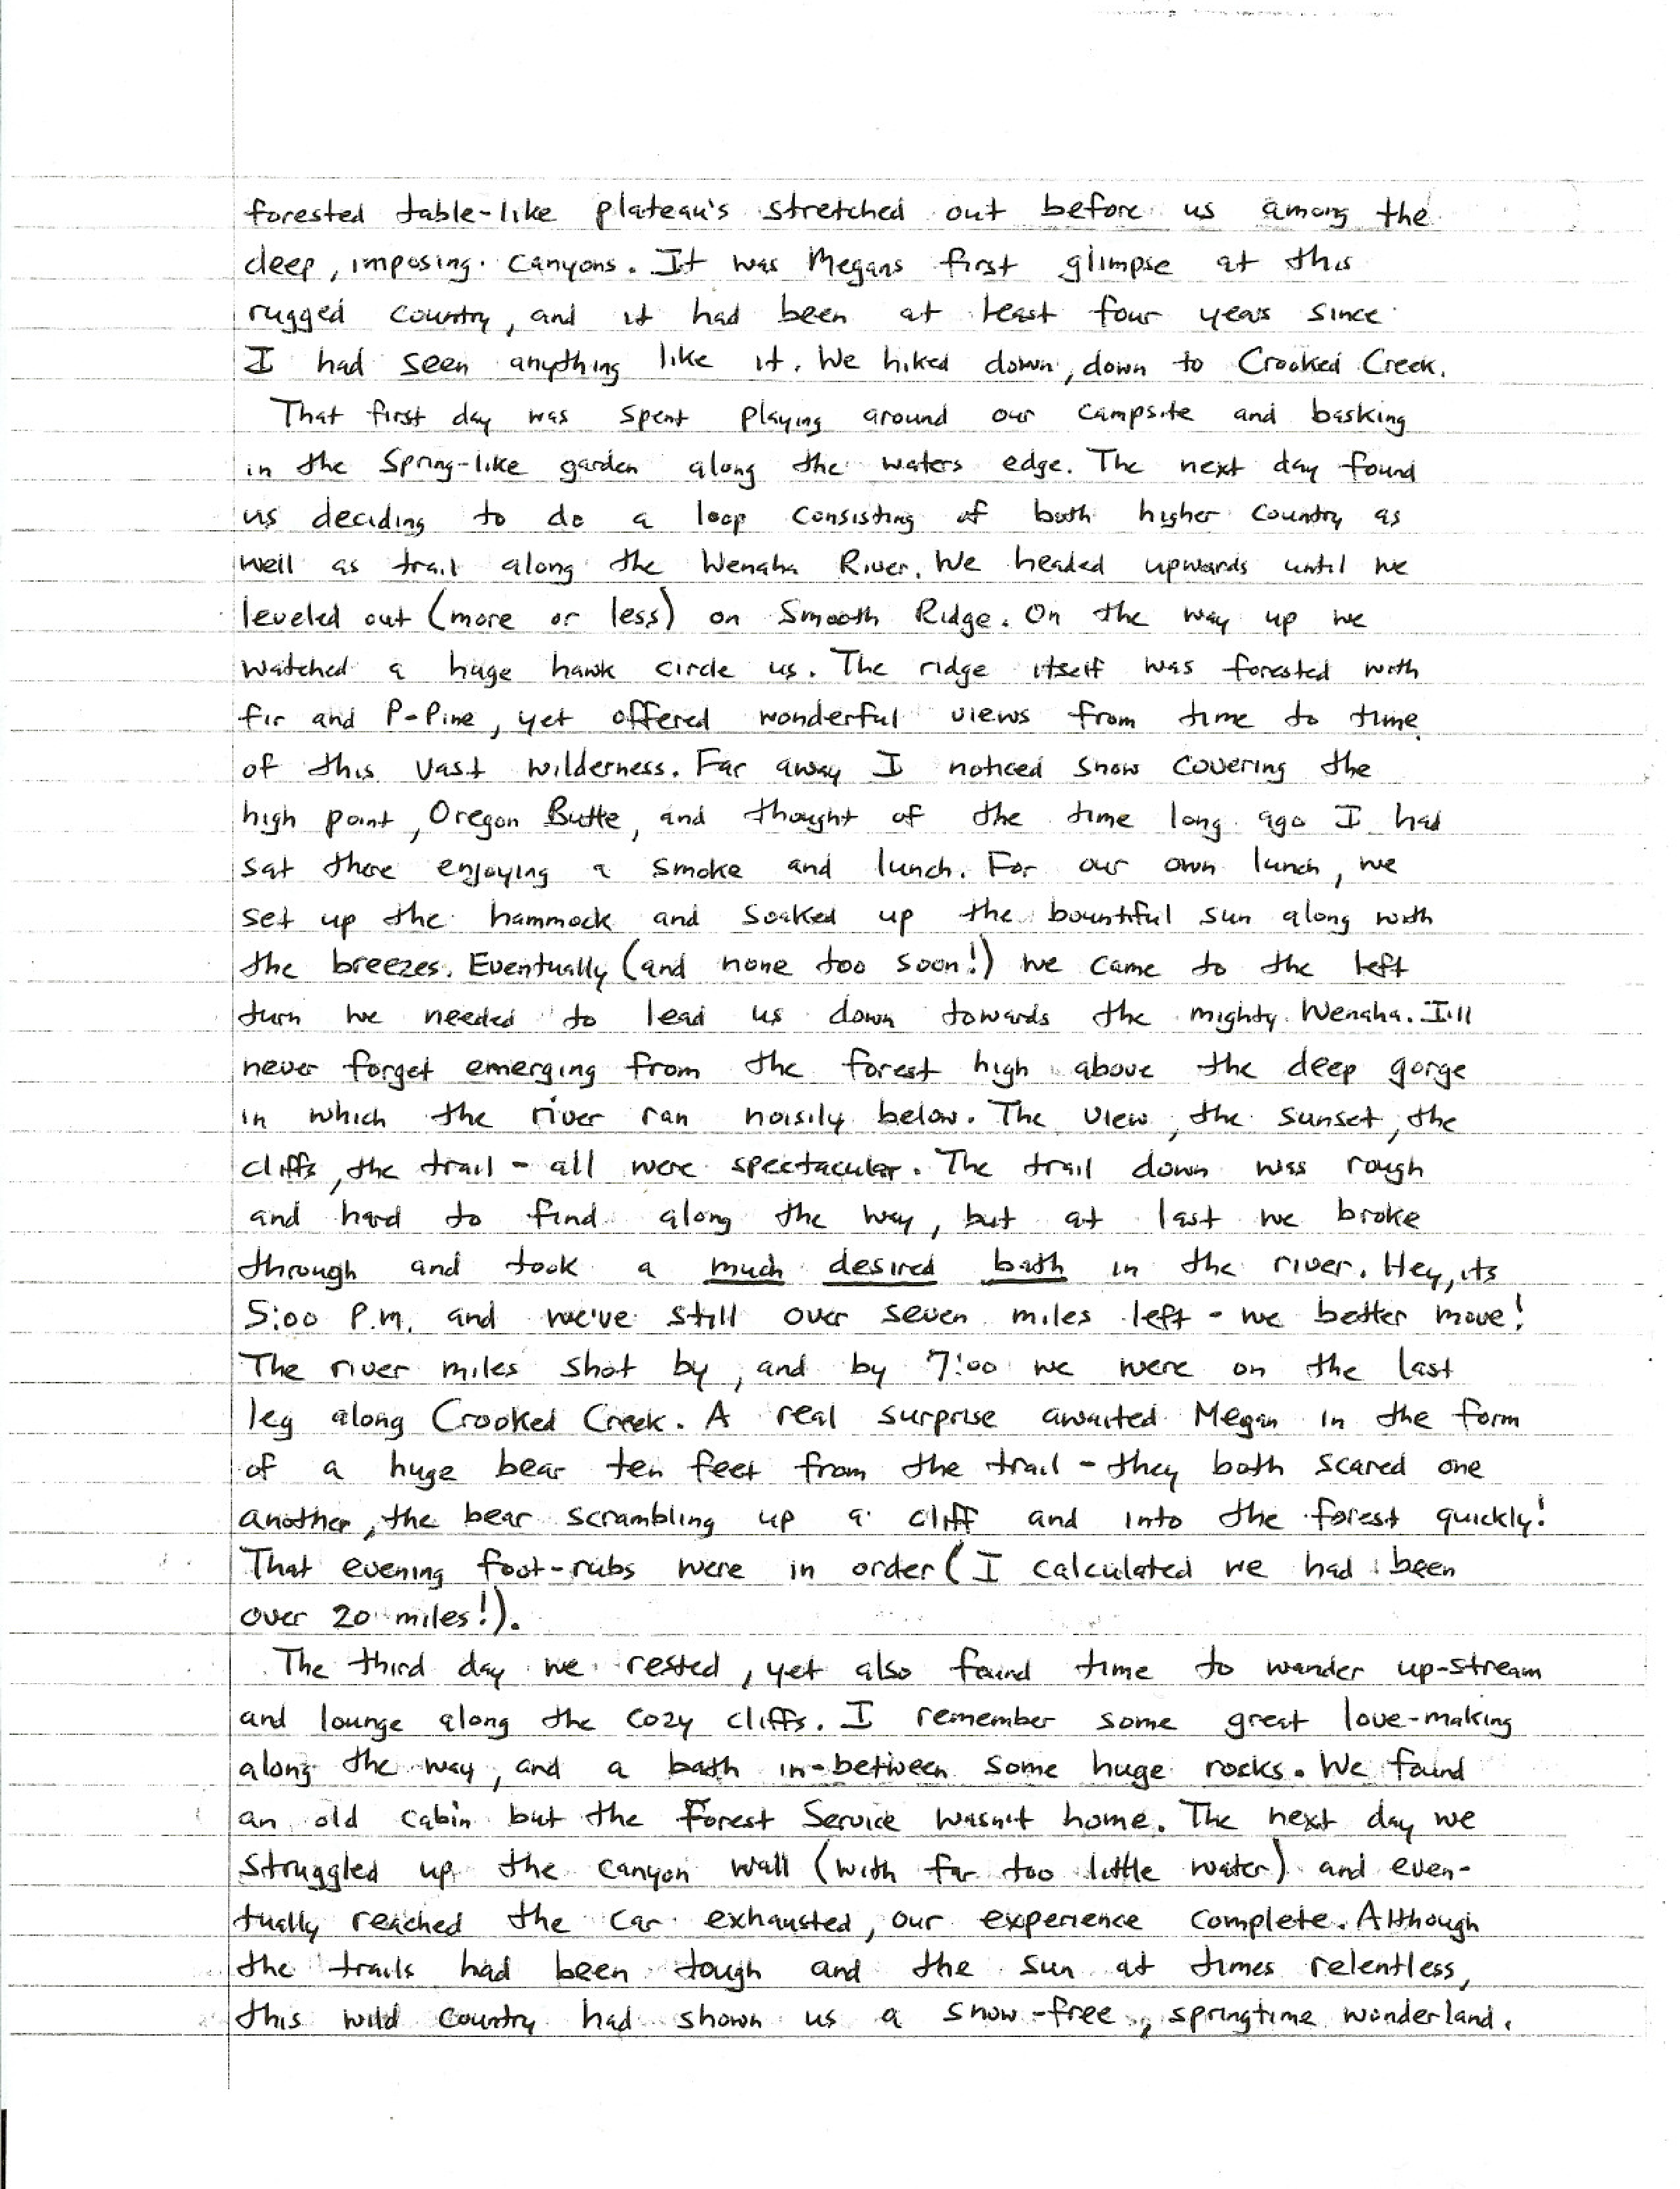 forested table-like plateau's stretched out before us among the
deep, imposing canyons. It was Megans first glimpse at this
rugged country, and it had been at least four years since
I had seen anything like it. We hiked down, down to Crooked Creek.
That first day was spent playing around our campsite and basking
in the Spring-like garden along the waters edge. The next day found
us deciding to do a loop consisting of both higher country as
well as trail along the Wenaha River. We headed upwards until we
leveled out (more or less) on Smooth Ridge. On the way up we
watched a huge hawk circle us. The ridge itself was forested with
fir and P-Pine, yet offered wonderful views from time to time
of this vast wilderness. Far away I noticed snow covering the
high point, Oregon Butte, and thought of the time long ago I had
sat there enjoying a smoke and lunch. For our own lunch, we
set up the hammock and soaked up the bountiful sun along with
the breezes. Eventually (and none too soon!) we came to the left
turn we needed to lead us down towards the mighty Wenaha. I'll
never forget emerging from the forest high above the deep gorge
in which the river ran noisily below. The view, the sunset, the
cliffs, the trail - all were spectacular. The trail down was rough
and hard to find along the way, but at last we broke
through and took a much desired bath in the river. Hey, its
5:00 P.M. and we've still over seven miles left - we better move!
The river miles shot by, and by 7:00 we were on the last
leg along Crooked Creek. A real surprise awaited Megan in the form
of a huge bear ten feet from the trail - they both scared one
another, the bear scrambling up a cliff and into the forest quickly!
That evening foot-rubs were in order (I calculated we had been
over 20 miles!).
The third day we rested, yet also found time to wander up-stream
and lounge along the cozy cliffs. I remember some great love-making
along the way, and a bath in-between some huge rocks. We found
an old cabin but the Forest Service wasn't home. The next day we
struggled up the canyon wall (with far too little water) and even-
tually reached the car exhausted, our experience complete. Although
the trails had been tough and the sun at times relentless,
this wild country had shown us a snow-free, springtime wonderland.